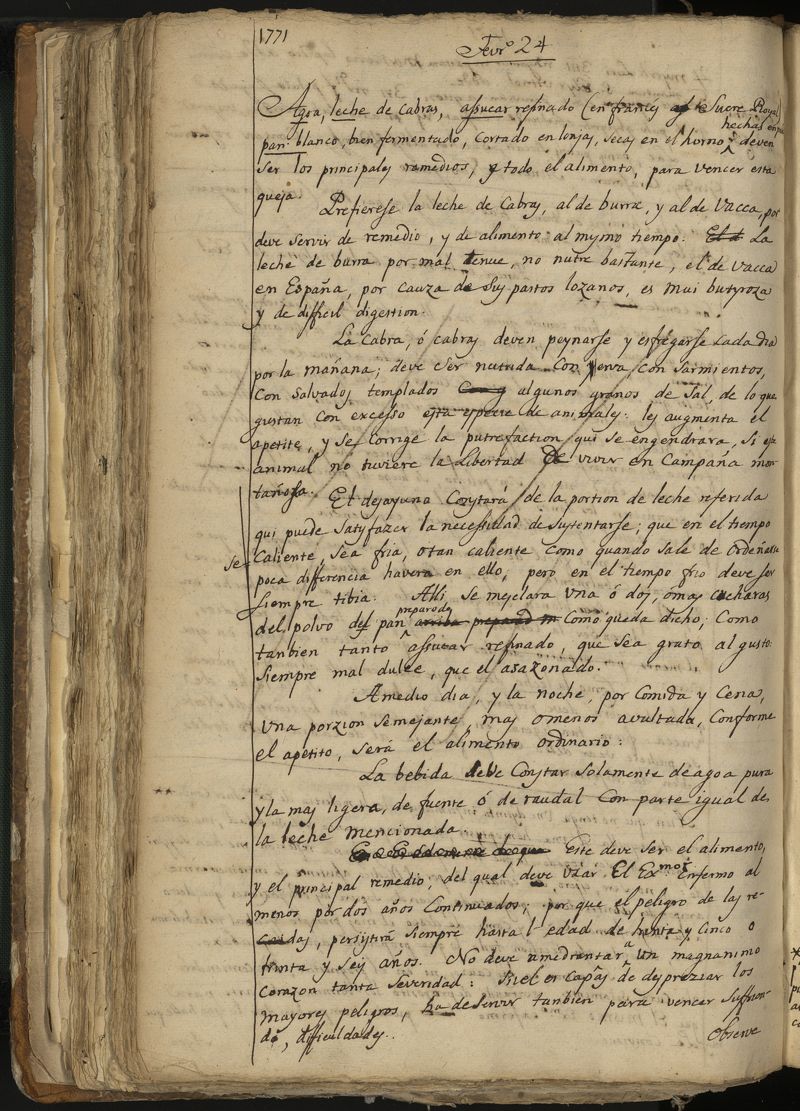 1771
Fevr.º 24
Agoa, leche de Cabras, assucar refinado (en frances Sucre Royal
hechas en pan
pan blanco, bien fermentado, cortado en lonjas, secas en el horno deven
ser los principales remedios, y todo el alimento, para vencer esta
queja.
Prefierese la leche de Cabras, al de burra, y al de Vacca, por
deve servir de remedio, y de alimento al mysmo tiempo: El d La
leche de burra por mal tenue, no nutre bastante, el de Vacca
en España, por cauza de sus pastos lozanos, es mui butyroza
y de difficil digestion.
La Cabra, ó cabras deven peynarse y esfregarse cada dia
por la mañana; deve ser nutrida con yerva, con sarmientos,
Con Salvados templados Con algunos granos de sal, de lo que
gustan con excesso esta especie de animales: les augmenta el
apetite, y se corrige la putrefaction qui se engendrara, si este
animal no tuviere la Libertad De vivir en Campaña mon-
tañosa.
El desayuna Constará de la portion de leche referida
qui puede satysfazer la necessidad de sustentarse; que en el tiempo
Se
Caliente, sea fria, o tan caliente como quando sale de Ordeñarla
poca differencia havera en ello, pero en el tiempo frio deve ser
siempre tibia. Alli se mesclara una ó dos, o mas cucharas
preparado
del polvo del pan arriba preparad Como queda dicho; Como
tanbien tanto assucar refinado, que sea grato al gusto:
Siempre mal dulce, que el asazonado.
A medio dia, y la noche, por Comida y Cena,
Una porzion semejante, mas o menos avultada, Conforme
el apetito, será el alimento ordinario:
La bebida deve Constar solamente de agoa pura
y la mas ligera, de fuente ó de raudal con parte igual de
la leche mencionada.
Este deve ser el alimento,
y el principal remedio, del qual deve uzar El Ex.mo Enfermo al
menos por dos años Continuados; por que el peligro de las re-
caidas, persistirá siempre hasta l'edad de trinta y Cinco o
trinta y seys años. No deve amedrantar a un magnanimo
Corazon tanta severidad: Si el es Capas de despreziar los
mayores peligros, ha de servir tanbien para vencer suffrien-
do, difficuldades.
Observe